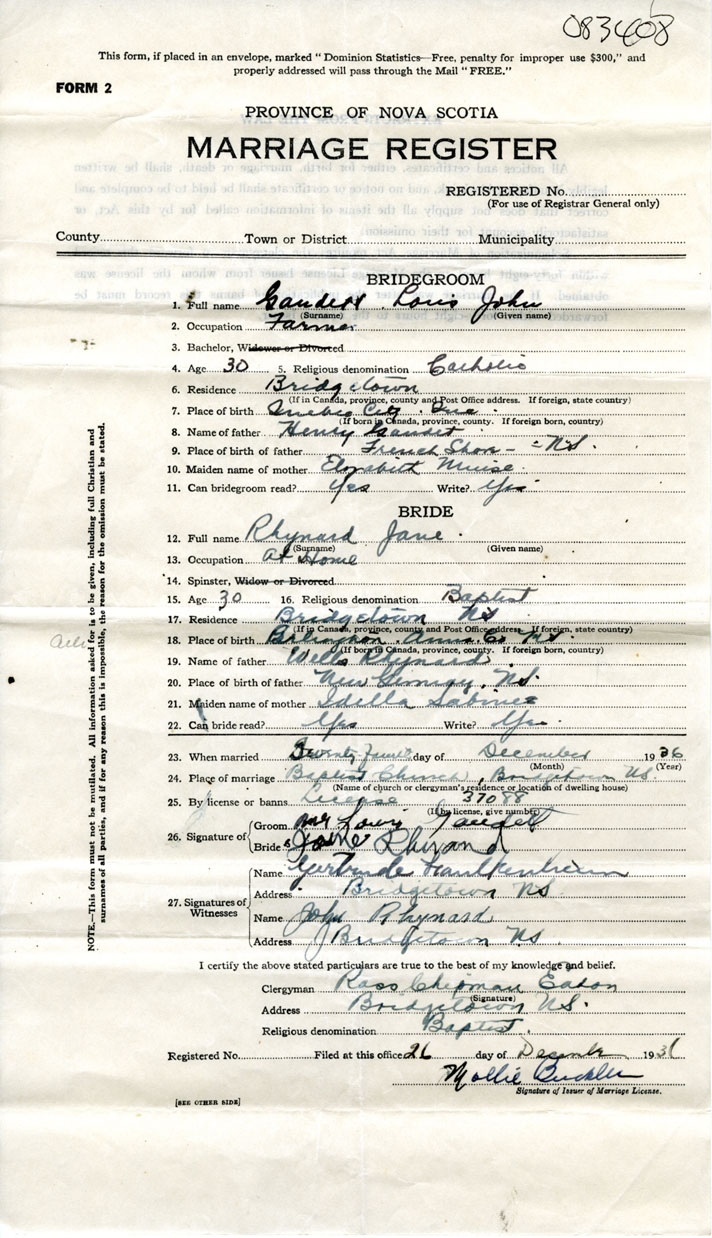 083408
This form, if placed in an envelope, marked "Dominion Statistics—Free, penalty for improper use $300," and
properly addressed will pass through the Mail "FREE."
FORM 2
PROVINCE OF NOVA SCOTIA
MARRIAGE REGISTER
REGISTERED No.
(For use of Registrar General only)
County Town or District Municipality
BRIDEGROOM
1. Full name Gaudett Louis John
(Surname) (Given name)
2. Occupation Farmer
3. Bachelor, Widower or Divorced
4. Age 30 5. Religious denomination Catholic
6. Residence Bridgetown
(If in Canada, province, county and Post Office address. If foreign, state country)
7. Place of birth Quebec City. Que.
(If born in Canada, province, county. If foreign born, country)
8. Name of father Henry Gaudet
9. Place of birth of father French Shore - N.S.
10. Maiden name of mother Elizabeth Muise
11. Can bridegroom read? Yes Write? Yes
BRIDE
12. Full name Rhynard Jane
(Surname) (Given name)
13. Occupation At Home
14. Spinster, Widow or Divorced
15. Age 30 16. Religious denomination Baptist
17. Residence Bridgetown NS
(If in Canada, province, county and Post Office address. If foreign, state country)
18. Place of birth Anna. Co NS.
(If born in Canada, province, county. If foreign born, country)
19. Name of father Wells Rhynard
20. Place of birth of father New Germany, NS.
21. Maiden name of mother Idella Sabine
22. Can bride read? Yes Write? Yes.
23. When married day of December 1936
(Month) (Year)
24. Place of marriage Baptist Church, Bridgetown NS
(Name of church or clergyman's residence or location of dwelling house)
25. By license or banns License 37088
(If by license, give number)
26. Signature of Groom Mr Louis Gaudett
Bride Jane Rhynard
27. Signatures of Witnesses
Name Gertrude
Address Bridgetown NS
Name John Rhynard
Address Bridgetown NS
I certify the above stated particulars are true to the best of my knowledge and belief.
Clergyman Ross Chipman Eaton
(Signature)
Address Bridgetown N.S.
Religious denomination Baptist.
Registered No. Filed at this office 26 day of December 1936
Mollie Buckler
Signature of Issuer of Marriage License.
[SEE OTHER SIDE]
NOTE.—This form must not be mutilated. All information asked for is to be given, including full Christian and
surnames of all parties, and if for any reason this is impossible, the reason for the omission must be stated.